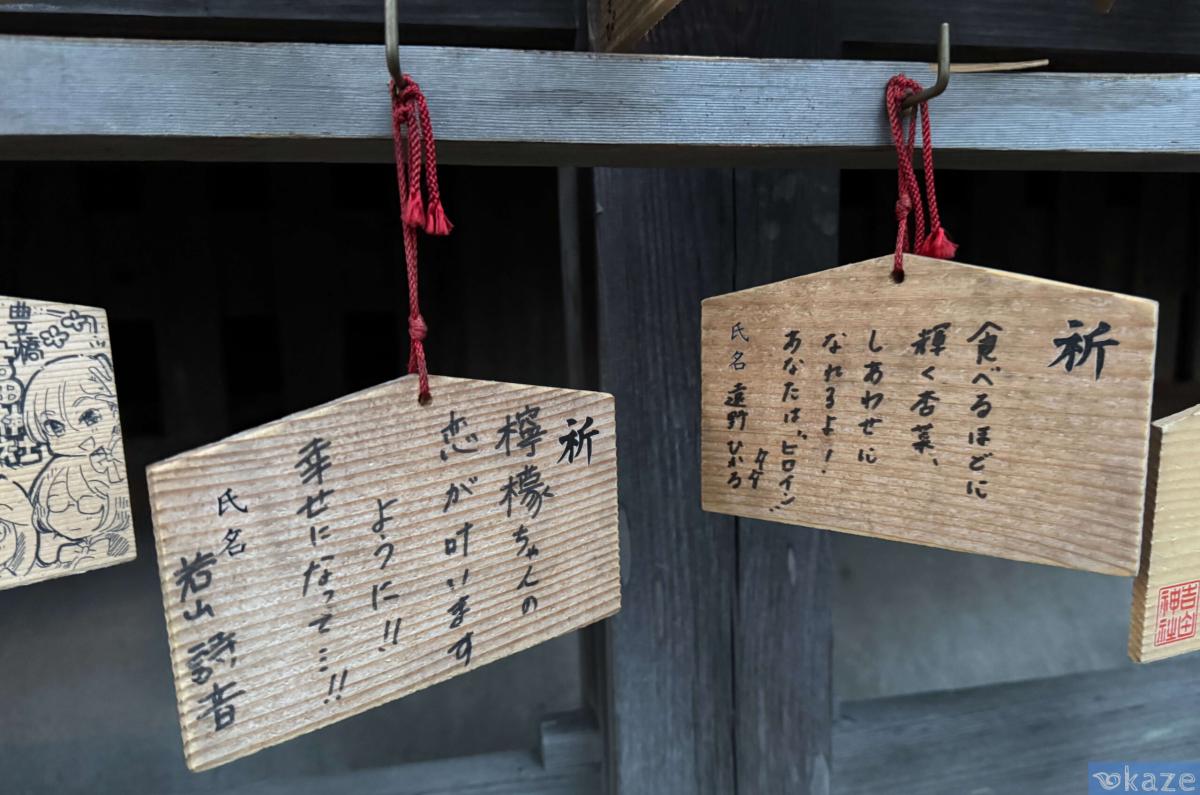 豊橋
祈
檸檬ちゃんの
恋が叶います
ように!!
幸せになって…!!
氏名
岩山 詩音
祈
食べるほどに
輝く杏菜、
しあわせに
なれるよ!
あなたは"ヒロイン"
タゲ
氏名 遠野 ひかる
吉田
神社
okaze